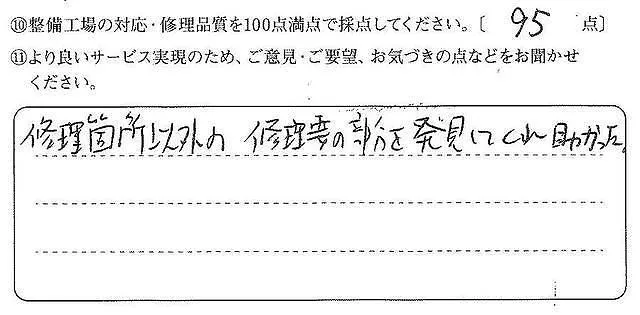 ⑩整備工場の対応・修理品質を100点満点で採点してください。〔 95 点〕
⑪より良いサービス実現のため、ご意見・ご要望、お気づきの点などをお聞かせ
ください。
修理箇所以外の修理要の部分を発見してくれ助かった。